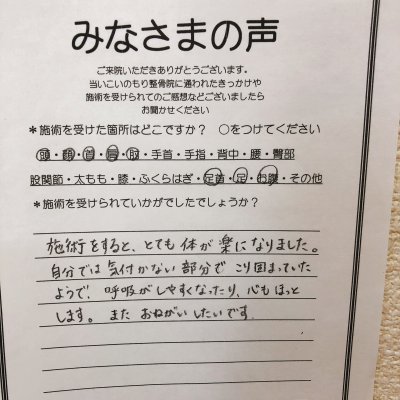 みなさまの声
ご来院いただきありがとうございます。
当いこいのもり整骨院に通われたきっかけや
施術を受けられてのご感想などございましたら
お聞かせください
＊施術を受けた箇所はどこですか？ ○をつけてください
頭・顔・首・肩・肘・手首・手指・背中・腰・臀部
股関節・太もも・膝・ふくらはぎ・足首・足・お腹・その他
＊施術を受けられていかがでしたでしょうか？
施術をすると、とても体が楽になりました。
自分では気付かない部分でこり固まっていた
ようで、呼吸がしやすくなったり、心もほっと
します。またおねがいしたいです。